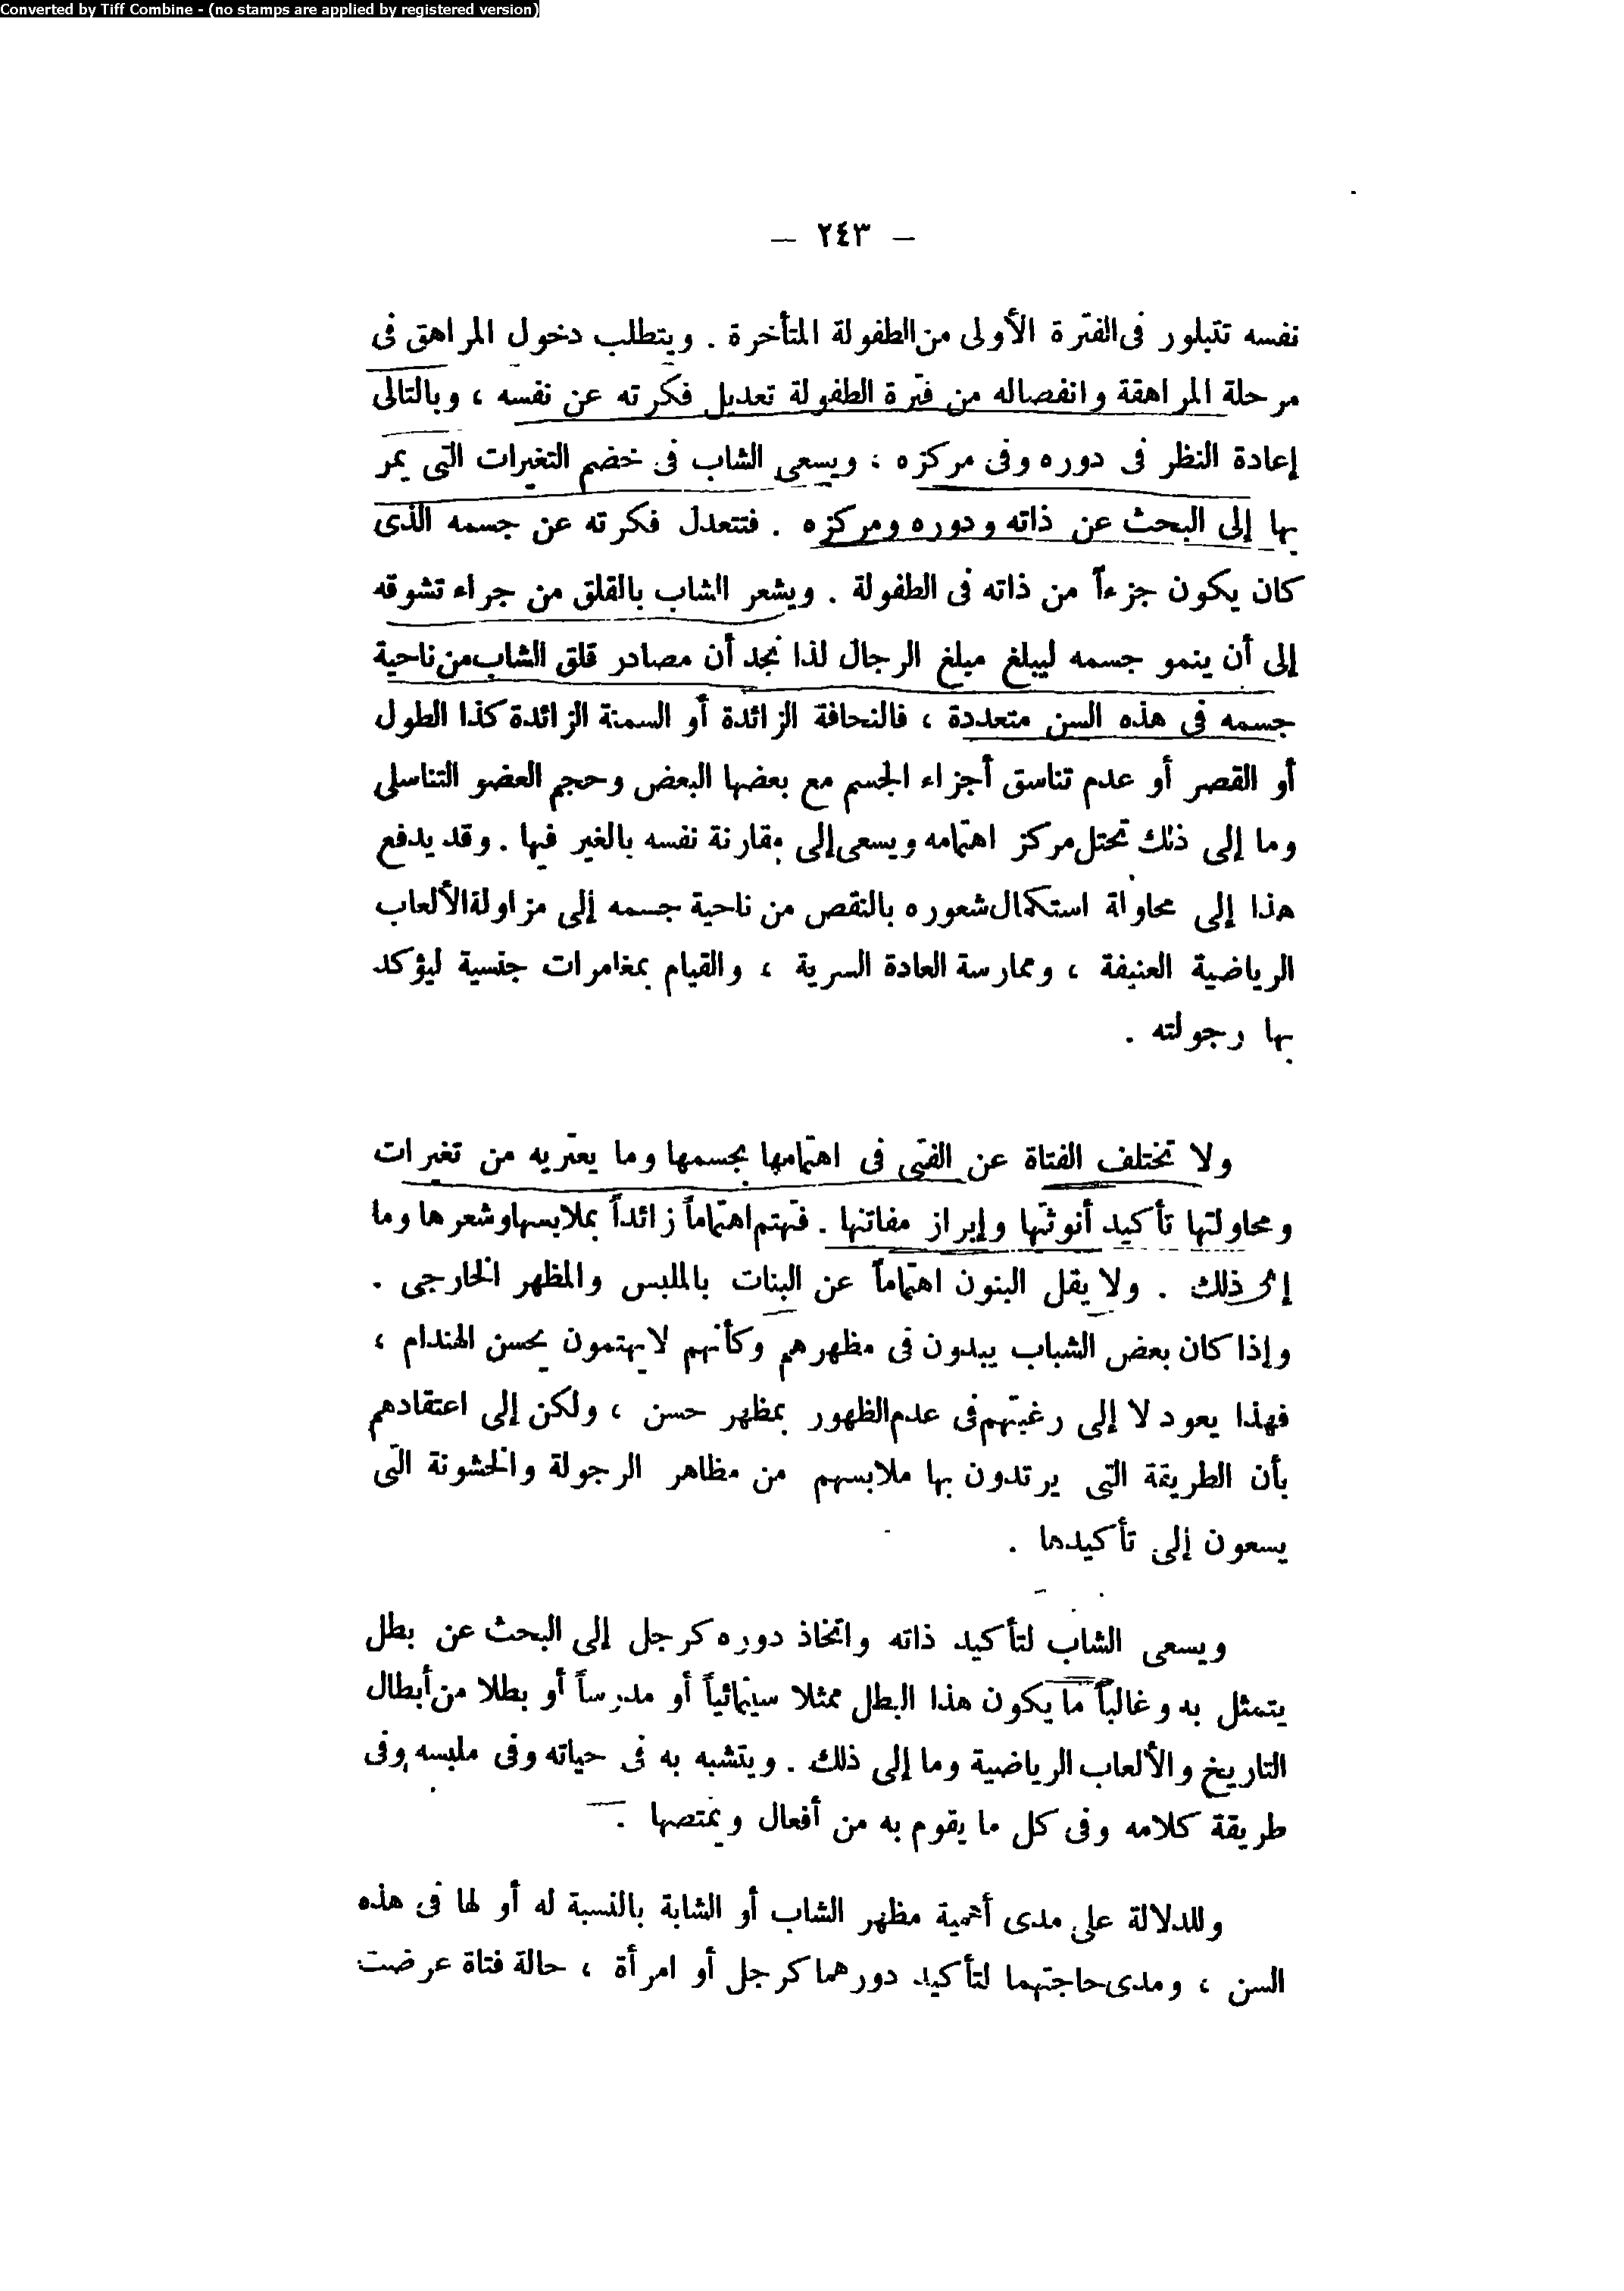 Converted by Tiff Combine - (no stamps are applied by registered version)
— ٢٤٣ —
نفسه تتبلور فى الفترة الأولى من الطفولة المتأخرة . ويتطلب دخول المراهق فى
مرحلة المراهقة وانفصاله من فترة الطفولة تعديل فكرته عن نفسه ، وبالتالى
إعادة النظر فى دوره وفى مركزه ، ويسعى الشاب فى خضم التغيرات التى يمر
بها إلى البحث عن ذاته ودوره ومركزه . فتتعدل فكرته عن جسمه الذى
كان يكون جزءاً من ذاته فى الطفولة . ويشعر الشاب بالقلق من جراء تشوقه
إلى أن ينمو جسمه ليبلغ مبلغ الرجال لذا نجد أن مصادر قلق الشاب من ناحية
جسمه فى هذه السن متعددة ، فالنحافة الزائدة أو السمنة الزائدة كذا الطول
أو القصر أو عدم تناسق أجزاء الجسم مع بعضها البعض وحجم العضو التناسلى
وما إلى ذلك تحتل مركز اهتمامه ويسعى إلى مقارنة نفسه بالغير فيها . وقد يدفع
هذا إلى محاولة استكمال شعوره بالنقص من ناحية جسمه إلى مزاولة الألعاب
الرياضية العنيفة ، وممارسة العادة السرية ، والقيام بمغامرات جنسية ليؤكد
بها رجولته .
ولا تختلف الفتاة عن الفتى فى اهتمامها بجسمها وما يعتريه من تغيرات
ومحاولتها تأكيد أنوثتها وإبراز مفاتنها . فتهتم اهتماماً زائداً بملابسها وشعرها وما
إلى ذلك . ولا يقل البنون اهتماماً عن البنات بالملبس والمظهر الخارجى .
وإذا كان بعض الشباب يبدون فى مظهرهم وكأنهم لا يهتمون بحسن الهندام ،
فهذا يعود لا إلى رغبتهم فى عدم الظهور بمظهر حسن ، ولكن إلى اعتقادهم
بأن الطريقة التى يرتدون بها ملابسهم من مظاهر الرجولة والخشونة التى
يسعون إلى تأكيدها .
ويسعى الشاب لتأكيد ذاته واتخاذ دوره كرجل إلى البحث عن بطل
يتمثل به وغالباً ما يكون هذا البطل ممثلا سينمائياً أو مدرساً أو بطلا من أبطال
التاريخ والألعاب الرياضية وما إلى ذلك . ويتشبه به فى حياته وفى ملبسه وفى
طريقة كلامه وفى كل ما يقوم به من أفعال ويمتصها .
وللدلالة على مدى أهمية مظهر الشاب أو الشابة بالنسبة له أو لها فى هذه
السن ، ومدى حاجتهما لتأكيد دورهما كرجل أو امرأة ، حالة فتاة عرضت